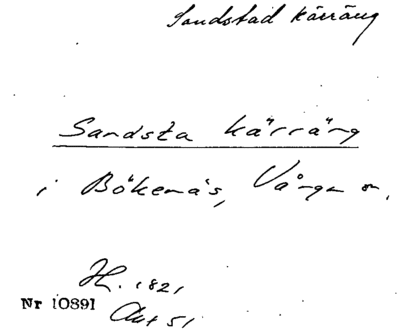 Sandstad kärräng
Sandsta kärräng
i Bökenäs, Vånga sn.
H. 1821
Nr 10891
Akt 51